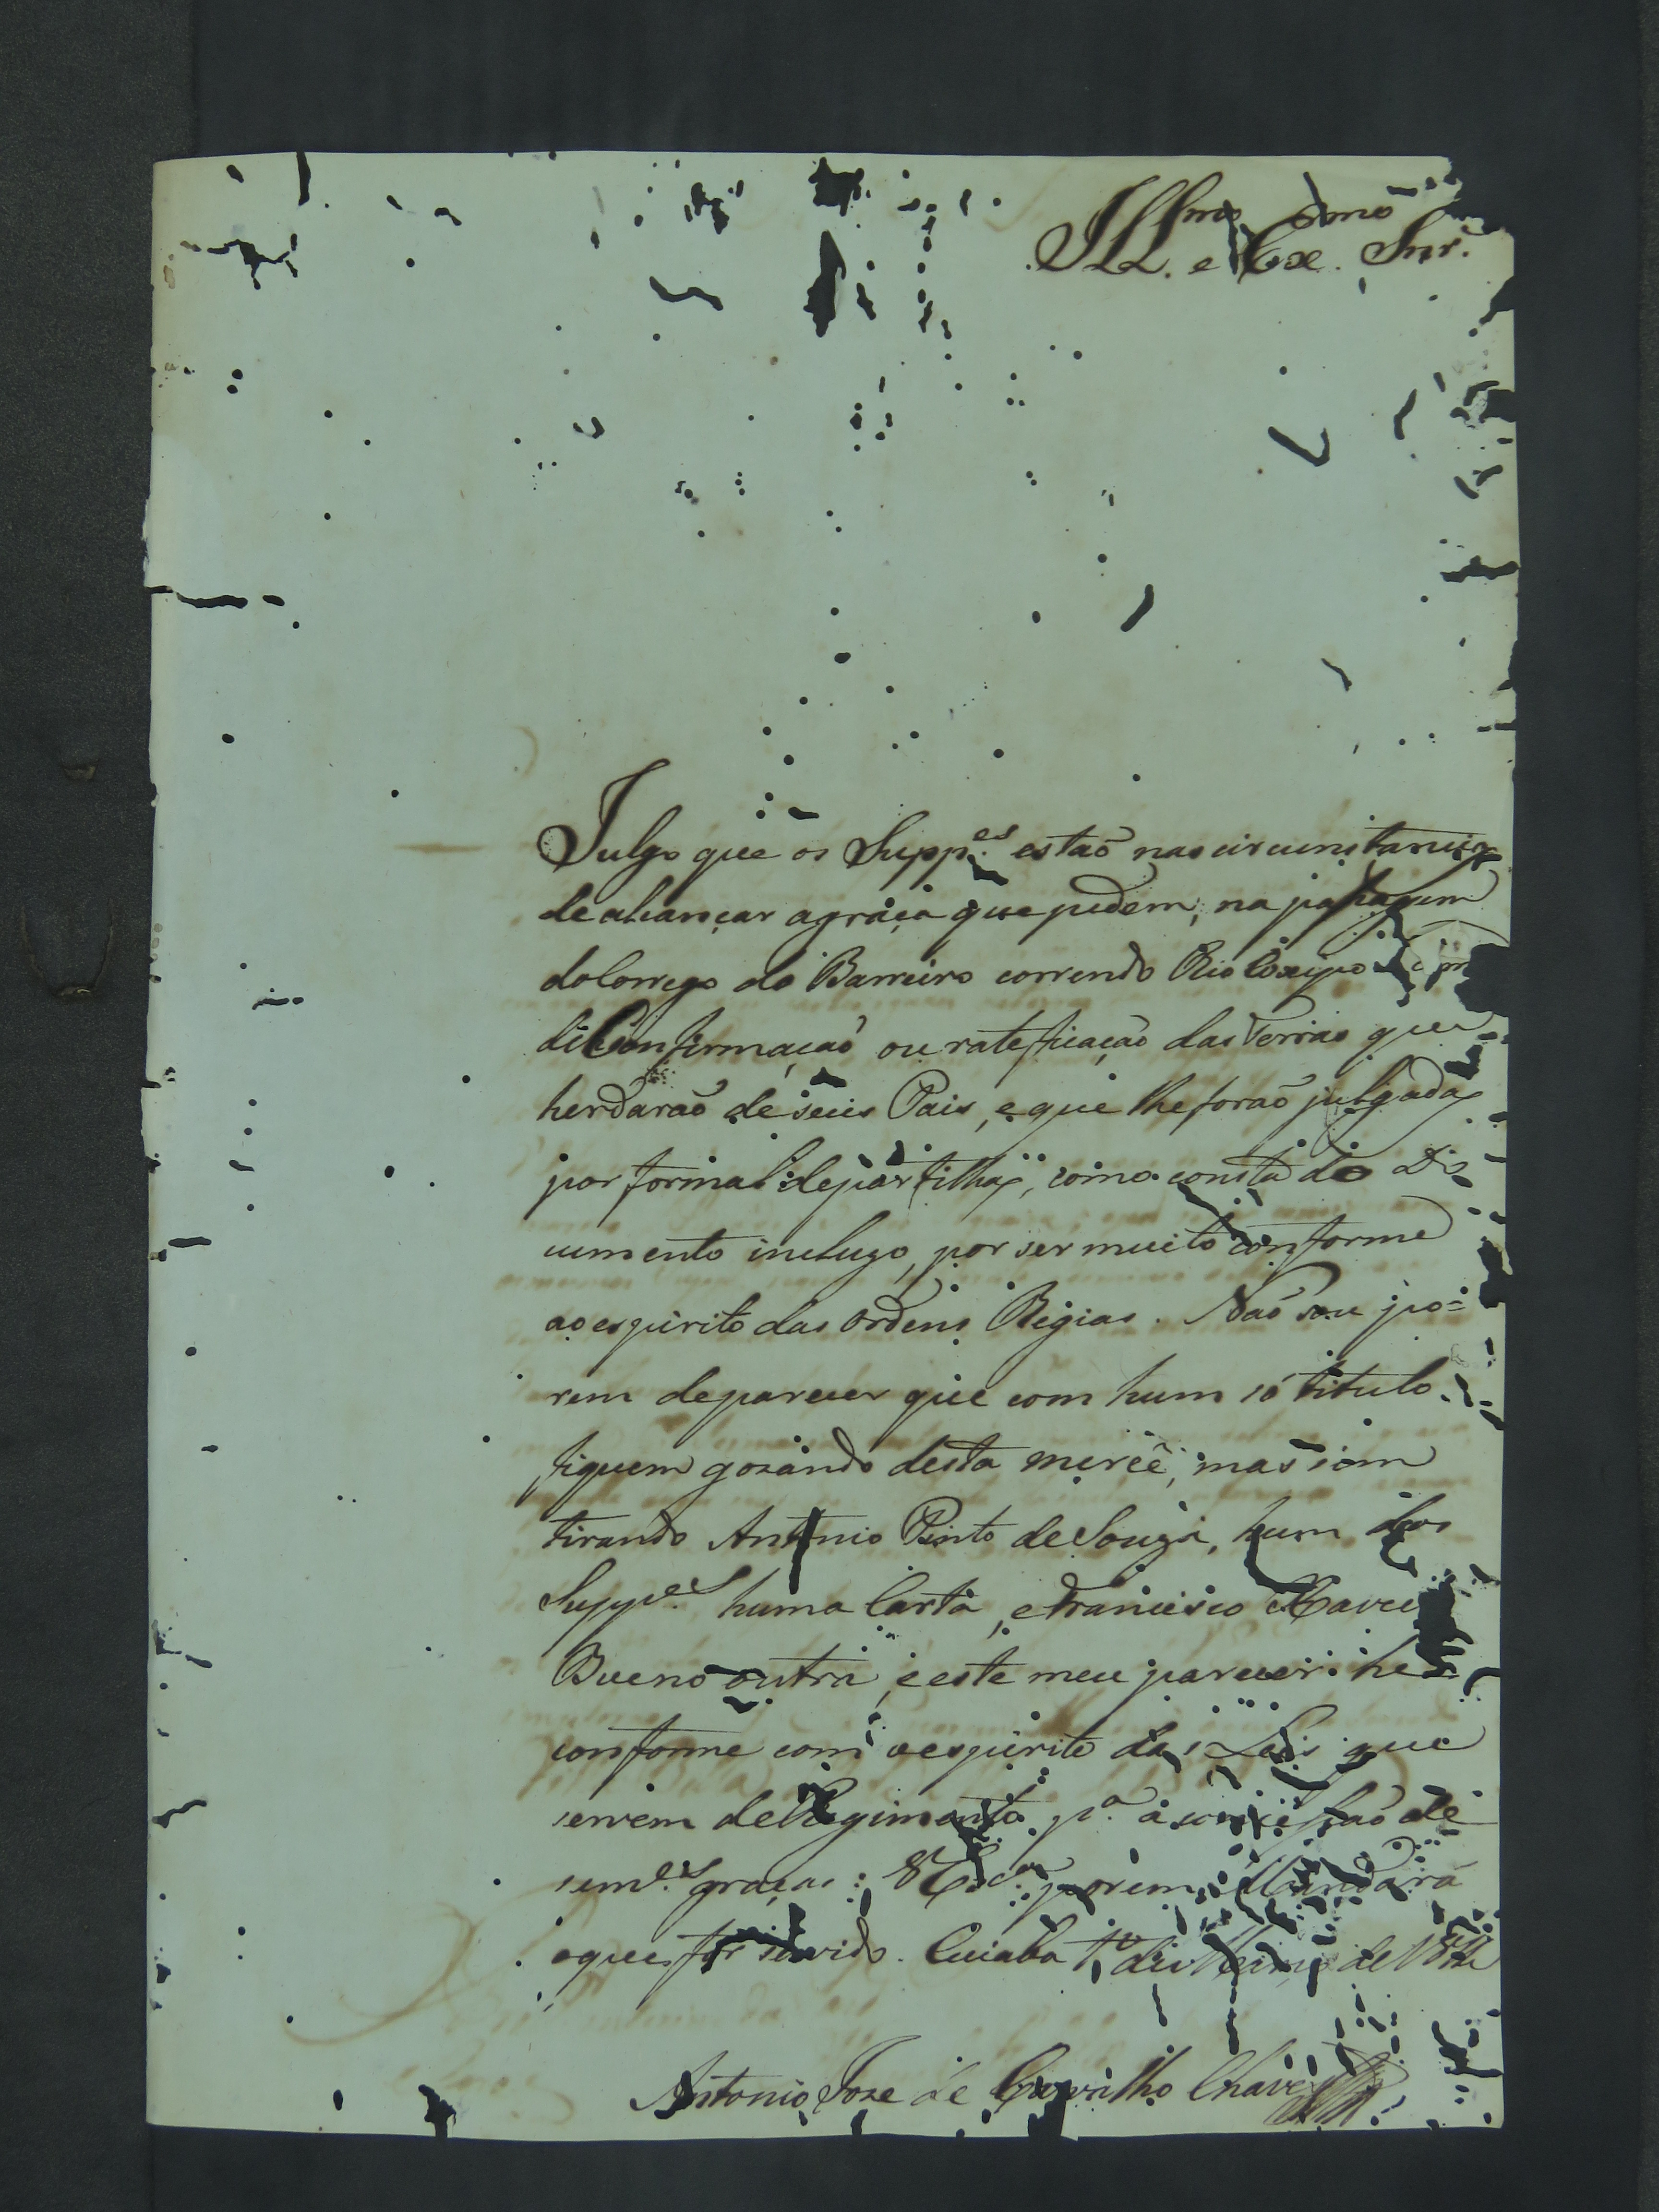 Ill.mo e Ex.mo Snr.
Julgo que os Supp.es estaõ nas circunstancias
de alcançar a graça que pedem, na paragem
do Corrego do Barreiro correndo Rio Coxipo
de Confirmaçaõ ou rateficaçaõ das Terras que
herdaraõ de seus Pais, e que lhe foraõ julgadas
por formal de partilhas, como consta do Do
cumento incluzo, por ser muito conforme
ao espirito das Ordens Regias. Naõ sou po=
rem de parecer que com hum só titulo
fiquem gozando desta mercê, mas sim
tirando Antonio Pinto de Souza, hum dos
Supp.es huma Carta, e Francisco Xavier
Bueno outra, e este meu parecer he
conforme com o espirito das Leis que
servem de Regimento p.a a concessaõ de
sem.es graças: V Ex.cia porem Mandará
o que for servido. Cuiabá de Março de
Antonio Jose de Carvalho Chaves